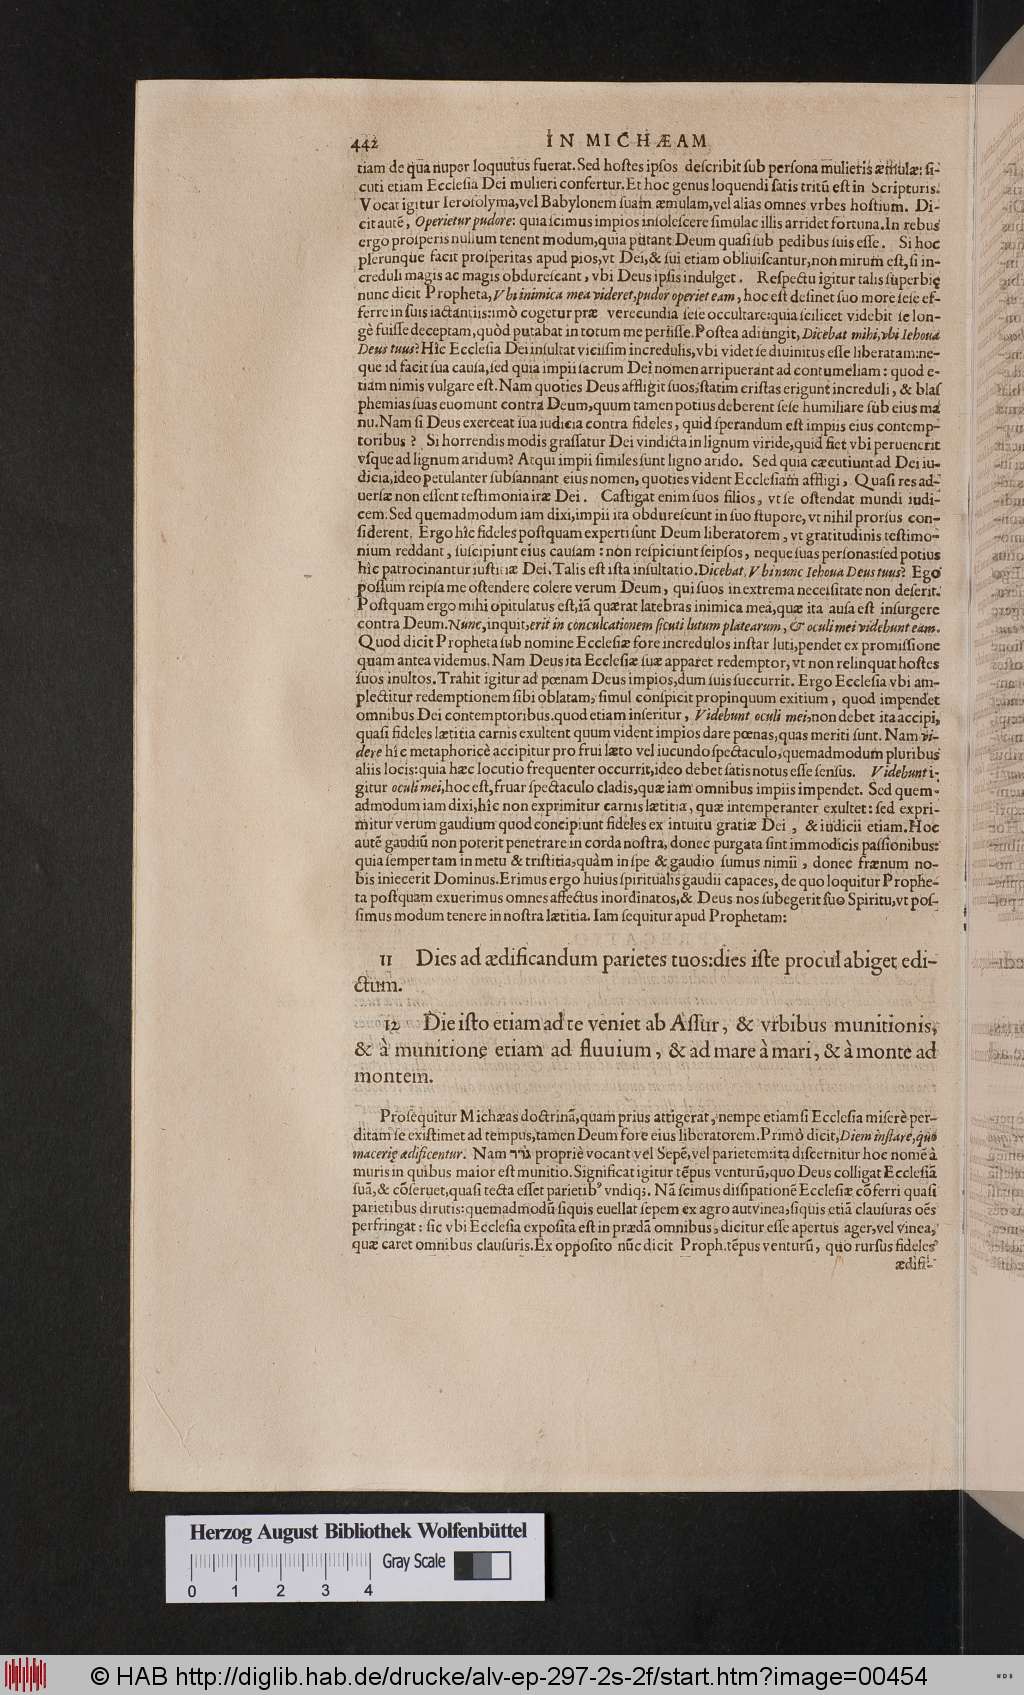 442 IN MICHÆAM
tiam de qua nuper loquutus fuerat. Sed hostes ipsos describit sub persona mulieris æmulæ: si-
cuti etiam Ecclesia Dei mulieri confertur. Et hoc genus loquendi satis tritũ est in Scripturis.
Vocat igitur Ierosolyma, vel Babylonem suam æmulam, vel alias omnes vrbes hostium. Di-
cit autẽ, Operietur pudore: quia scimus impios insolescere simulac illis arridet fortuna. In rebus
ergo prosperis nullum tenent modum, quia putant Deum quasi sub pedibus suis esse. Si hoc
plerunque facit prosperitas apud pios, vt Dei, & sui etiam obliuiscantur, non mirum est, si in-
creduli magis ac magis obdurescant, vbi Deus ipsis indulget. Respectu igitur talis superbię
nunc dicit Propheta, Vbi inimica mea videret, pudor operiet eam, hoc est desinet suo more sese ef-
ferre in suis iactantiis: imò cogetur præ verecundia sese occultare: quia scilicet videbit se lon-
gè fuisse deceptam, quòd putabat in totum me periisse. Postea adiungit, Dicebat mihi, vbi Iehoua
Deus tuus? Hîc Ecclesia Dei insultat vicissim incredulis, vbi videt se diuinitus esse liberatam: ne-
que id facit sua causa, sed quia impii sacrum Dei nomen arripuerant ad contumeliam: quod e-
tiam nimis vulgare est. Nam quoties Deus affligit suos, statim cristas erigunt increduli, & blas
phemias suas euomunt contra Deum, quum tamen potius deberent sese humiliare sub eius ma
nu. Nam si Deus exerceat sua iudicia contra fideles, quid sperandum est impiis eius contemp-
toribus? Si horrendis modis grassatur Dei vindicta in lignum viride, quid fiet vbi peruenerit
vsque ad lignum aridum? Atqui impii similes sunt ligno arido. Sed quia cæcutiunt ad Dei iu-
dicia, ideo petulanter subsannant eius nomen, quoties vident Ecclesiam affligi, Quasi res ad-
uersæ non essent testimonia iræ Dei. Castigat enim suos filios, vt se ostendat mundi iudi-
cem. Sed quemadmodum iam dixi, impii ita obdurescunt in suo stupore, vt nihil prorsus con-
siderent. Ergo hîc fideles postquam experti sunt Deum liberatorem, vt gratitudinis testimo-
nium reddant, suscipiunt eius causam: non respiciunt seipsos, neque suas personas: sed potius
hîc patrocinantur iustitiæ Dei. Talis est ista insultatio. Dicebat, Vbi nunc Iehoua Deus tuus? Ego
possum reipsa me ostendere colere verum Deum, qui suos in extrema necessitate non deserit.
Postquam ergo mihi opitulatus est, iã quærat latebras inimica mea, quæ ita ausa est insurgere
contra Deum. Nunc, inquit, erit in conculcationem sicuti lutum platearum, & oculi mei videbunt eam.
Quod dicit Propheta sub nomine Ecclesiæ fore incredulos instar luti, pendet ex promissione
quam antea videmus. Nam Deus ita Ecclesiæ suæ apparet redemptor, vt non relinquat hostes
suos inultos. Trahit igitur ad pœnam Deus impios, dum suis succurrit. Ergo Ecclesia vbi am-
plectitur redemptionem sibi oblatam, simul conspicit propinquum exitium, quod impendet
omnibus Dei contemptoribus. quod etiam inseritur, Videbunt oculi mei, non debet ita accipi,
quasi fideles lætitia carnis exultent quum vident impios dare pœnas, quas meriti sunt. Nam vi-
dere hîc metaphoricè accipitur pro frui læto vel iucundo spectaculo, quemadmodum pluribus
aliis locis: quia hæc locutio frequenter occurrit, ideo debet satis notus esse sensus. Videbunt i-
gitur oculi mei, hoc est, fruar spectaculo cladis, quæ iam omnibus impiis impendet. Sed quem-
admodum iam dixi, hîc non exprimitur carnis lætitia, quæ intemperanter exultet: sed expri-
mitur verum gaudium quod concipiunt fideles ex intuitu gratiæ Dei, & iudicii etiam. Hoc
autẽ gaudiũ non poterit penetrare in corda nostra, donec purgata sint immodicis passionibus:
quia semper tam in metu & tristitia, quàm in spe & gaudio sumus nimii, donec frænum no-
bis iniecerit Dominus. Erimus ergo huius spiritualis gaudii capaces, de quo loquitur Prophe-
ta postquam exuerimus omnes affectus inordinatos, & Deus nos subegerit suo Spiritu, vt pos-
simus modum tenere in nostra lætitia. Iam sequitur apud Prophetam:
11 Dies ad ædificandum parietes tuos: dies iste procul abiget edi-
ctum.
12 Die isto etiam ad te veniet ab Assur, & vrbibus munitionis,
& à munitione etiam ad fluuium, & ad mare à mari, & à monte ad
montem.
Prosequitur Michæas doctrinã, quam prius attigerat, nempe etiamsi Ecclesia miserè per-
ditam se existimet ad tempus, tamen Deum fore eius liberatorem. Primò dicit, Diem instare, quo
macerię ædificentur. Nam גדר propriè vocant vel Sepẽ, vel parietem: ita discernitur hoc nomẽ à
muris in quibus maior est munitio. Significat igitur tẽpus venturũ, quo Deus colligat Ecclesiã
suã, & cõseruet, quasi tecta esset parietibꝰ vndiqꝫ. Nã scimus dissipationẽ Ecclesiæ cõferri quasi
parietibus dirutis: quemadmodũ siquis euellat sepem ex agro aut vinea, siquis etiã clausuras oẽs
perfringat: sic vbi Ecclesia exposita est in prædã omnibus, dicitur esse apertus ager, vel vinea,
quæ caret omnibus clausuris. Ex opposito nũc dicit Proph. tẽpus venturũ, quo rursus fideles
ædifi-
Herzog August Bibliothek Wolfenbüttel
Gray Scale
0 1 2 3 4
© HAB http://diglib.hab.de/drucke/alv-ep-297-2s-2f/start.htm?image=00454